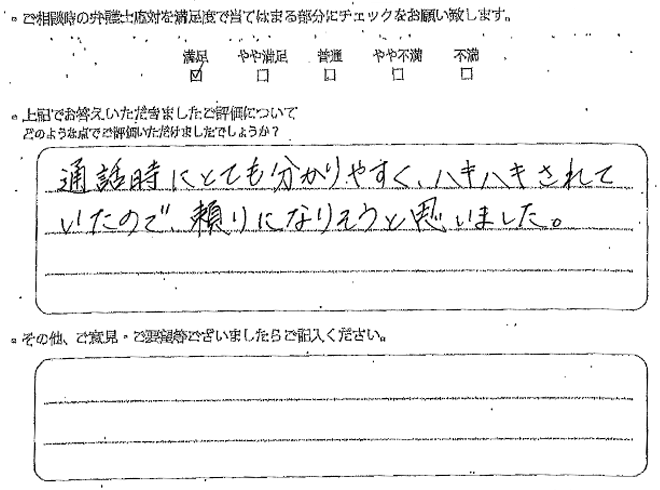 ・ご相談時の弁護士応対を満足度で当てはまる部分にチェックをお願い致します。
満足 やや満足 普通 やや不満 不満
☑ □ □ □ □
・上記でお答えいただきましたご評価について
どのような点でご評価いただけましたでしょうか？
通話時にとても分かりやすく、ハキハキされて
いたので、頼りになりそうと思いました。
・その他、ご意見・ご要望等ございましたらご記入ください。